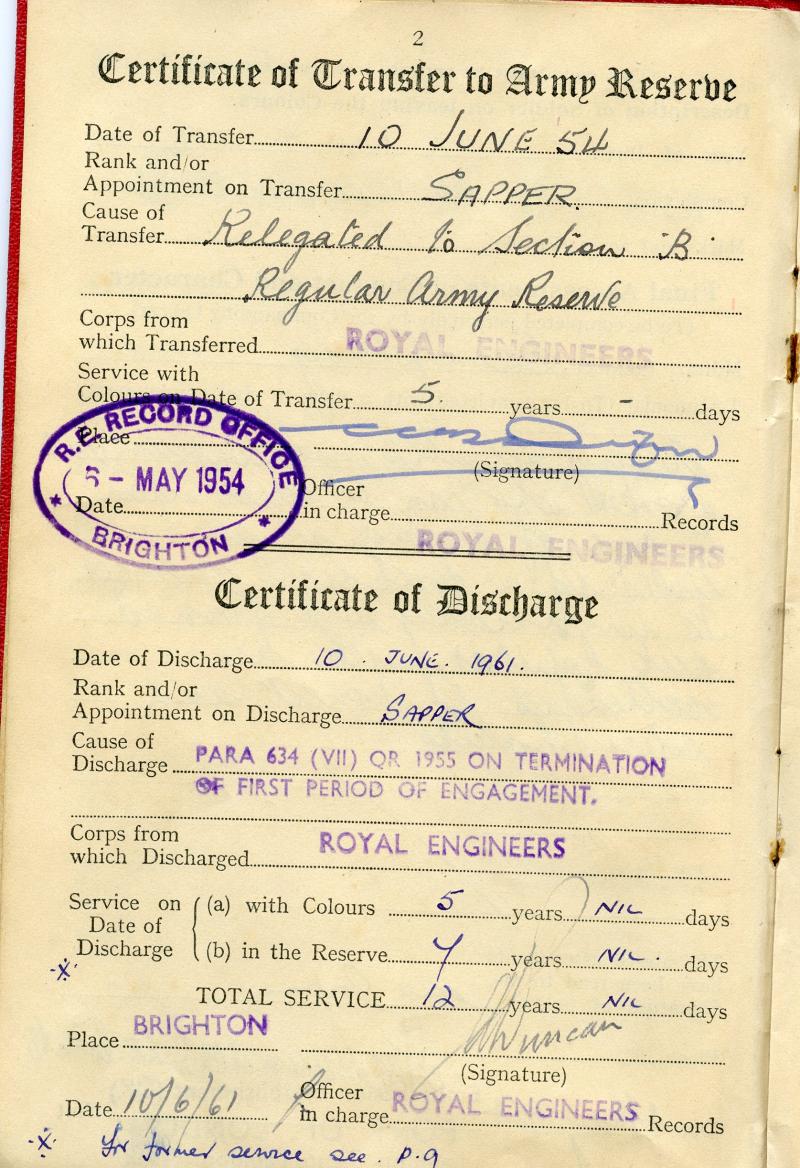 2
Certificate of Transfer to Army Reserve
Date of Transfer 10 JUNE 54
Rank and/or
Appointment on Transfer SAPPER.
Cause of
Transfer Relegated to Section 'B'
Regular Army Reserve
Corps from
which Transferred ROYAL ENGINEERS
Service with
Colours on Date of Transfer 5 years - days
Place
(Signature)
R.E. RECORD OFFICE
6 - MAY 1954
BRIGHTON
Officer
Date in charge Records
ROYAL ENGINEERS
Certificate of Discharge
Date of Discharge 10 . JUNE . 1961.
Rank and/or
Appointment on Discharge SAPPER
Cause of
Discharge PARA 634 (VII) QR 1955 ON TERMINATION
OF FIRST PERIOD OF ENGAGEMENT.
Corps from
which Discharged ROYAL ENGINEERS
Service on (a) with Colours 5 years NIL days
Date of
Discharge (b) in the Reserve 7 years NIL. days
-X-
TOTAL SERVICE 12 years NIL days
Place BRIGHTON Duncan
(Signature)
Officer
Date 10/6/61 in charge ROYAL ENGINEERS Records
-X- for former service see. P.9